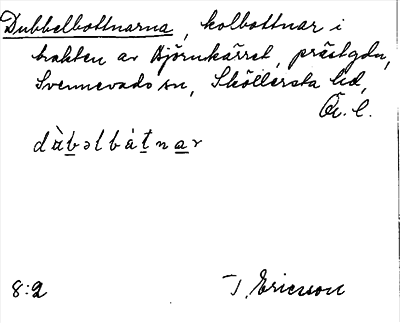 Dubbelbottnarna, kolbottnar i
trakten av Björnkärret, prästgdn,
Svennevads sn, Sköllersta hd,
Ör. l.
dùbəlbåtnar
8:2
T. Ericsson